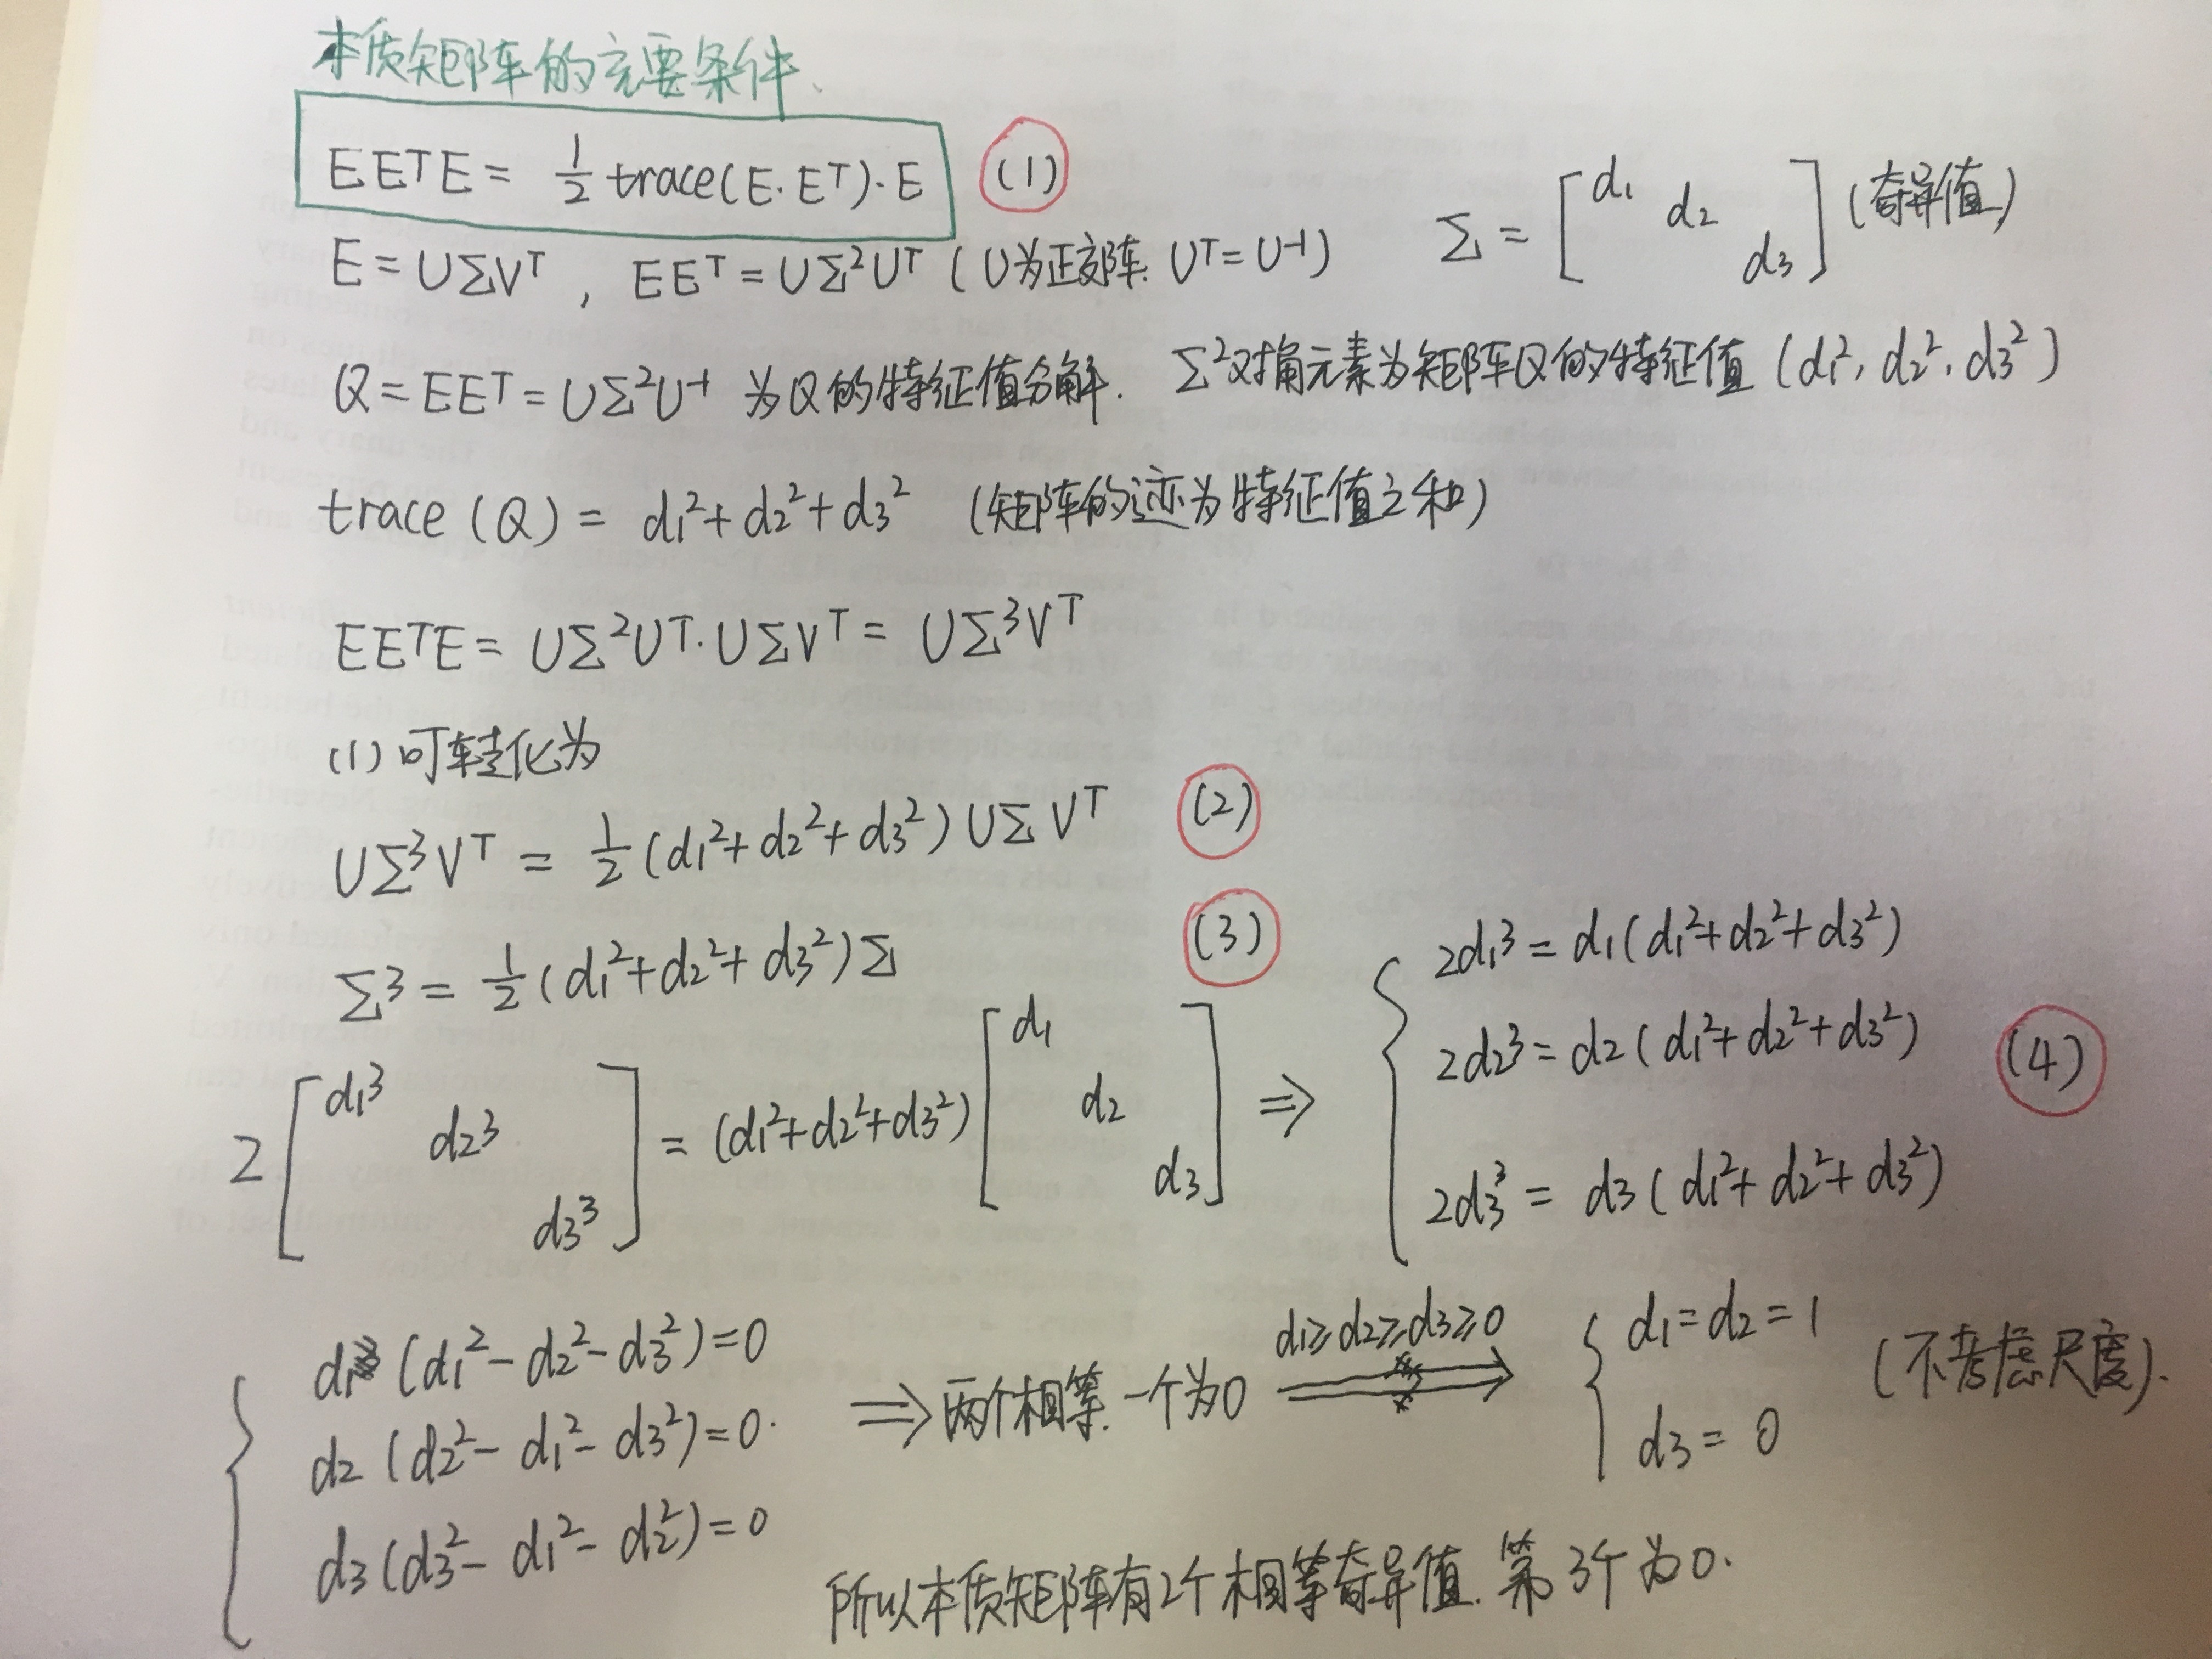 本质矩阵的充要条件
EEᵀE = 1/2 trace(E·Eᵀ)·E (1)
E = UΣVᵀ , EEᵀ = UΣ²Uᵀ (U为正交阵. Uᵀ = U⁻¹) Σ = [d₁ d₂ d₃] (奇异值)
Q = EEᵀ = UΣ²U⁻¹ 为Q的特征值分解. Σ²对角元素为矩阵Q的特征值 (d₁², d₂², d₃²)
trace(Q) = d₁²+d₂²+d₃² (矩阵的迹为特征值之和)
EEᵀE = UΣ²Uᵀ·UΣVᵀ = UΣ³Vᵀ
(1) 可转化为
UΣ³Vᵀ = 1/2 (d₁²+d₂²+d₃²) UΣVᵀ (2)
Σ³ = 1/2 (d₁²+d₂²+d₃²)Σ (3)
2[d₁³ d₂³ d₃³] = (d₁²+d₂²+d₃²)[d₁ d₂ d₃] ⇒
2d₁³ = d₁(d₁²+d₂²+d₃²)
2d₂³ = d₂(d₁²+d₂²+d₃²) (4)
2d₃³ = d₃(d₁²+d₂²+d₃²)
d₁(d₁²-d₂²-d₃²)=0
d₂(d₂²-d₁²-d₃²)=0.
d₃(d₃²-d₁²-d₂²)=0
⇒ 两个相等. 一个为0 d₁≥d₂≥d₃≥0 ⇒
d₁=d₂=1
d₃=0
(不考虑尺度).
所以本质矩阵有2个相等奇异值. 第3个为0.